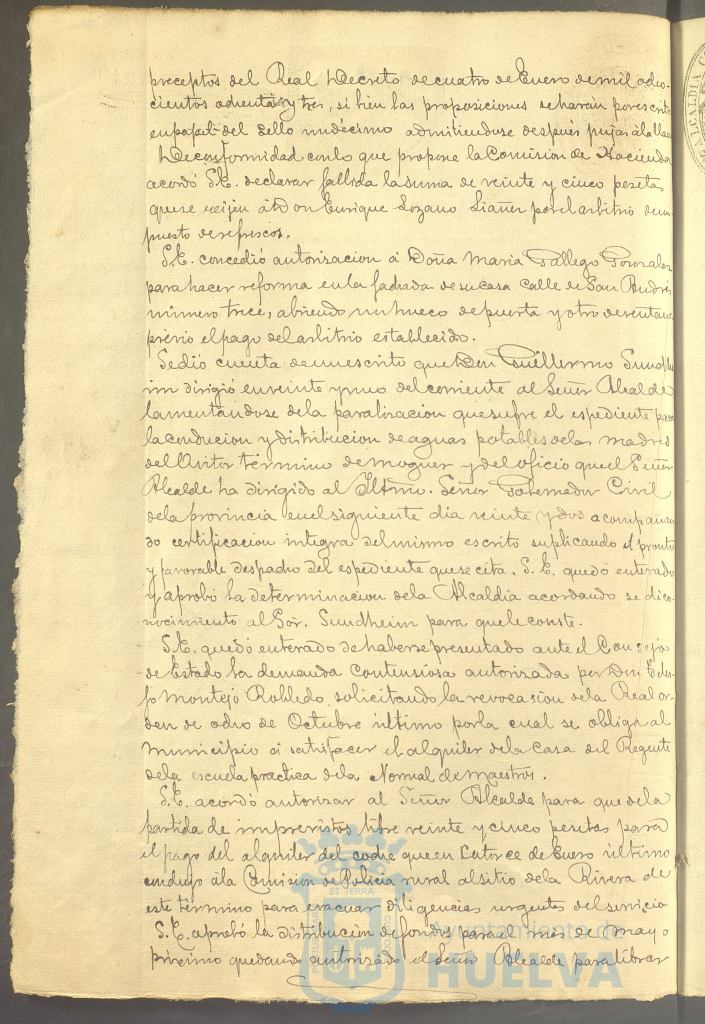 preceptos del Real Decreto de cuatro de Enero de mil ocho-
cientos ochenta y tres, si bien las proposiciones se harán por escrito
en papel del sello undécimo admitiendose después pujas á la llana
De conformidad con lo que propone la Comision de Hacienda
acordó S.E. declarar fallida la suma de veinte y cinco pesetas
que se exijen á Don Enrique Lozano Liañez por el arbitrio de un
puesto de refrescos.
S.E. concedió autorizacion á Doña Maria Gallego Gonzalez
para hacer reforma en la fachada de su casa calle de San Andrés
número trece, abriendo un hueco de puerta y otro de ventana
prévio el pago del arbitrio establecido.
Se dió cuenta de un escrito que Don Guillermo Sundh
im dirigió en veinte y uno del corriente al Señor Alcalde
lamentandose de la paralizacion que sufre el espediente para
la conducion y distribucion de aguas potables de las madres
del Avitor término de moguer y del oficio que el Señor
Alcalde ha dirigido al Iltmo. Señor Gobernador Civil
de la provincia en el siguiente dia veinte y dos acompañan
do certificacion integra del mismo escrito suplicando el pronto
y favorable despacho del espediente que se cita. S. E. quedó enterado
y aprobó la determinacion de la Alcaldia acordando se dé co-
nocimiento al Sor. Sundheim para que le conste.
S.E. quedó enterado de haberse presentado ante el Consejo
de Estado la demanda contensiosa autorizada por Don
Montejo Robledo solicitando la revocasion de la Real or-
den de ocho de Octubre último por la cual se obliga al
Municipio á satisfacer el alquiler de la casa del Regente
de la escuela practica de la Normal de Maestros.
S.E. acordó autorizar al Señor Alcalde para que de la
partida de imprevistos libre veinte y cinco pesetas para
el pago del alquiler del coche que en Catorce de Enero último
condujo á la Comision de Policia rural al sitio de la Rivera de
este término para evacuar diligencias urgentes del servicio
S.E. aprobó la distribucion de fondos para el mes de mayo
próximo quedando autorizado el Señor Alcalde para librar
Ayuntamiento de
HUELVA
ALCALDIA CO